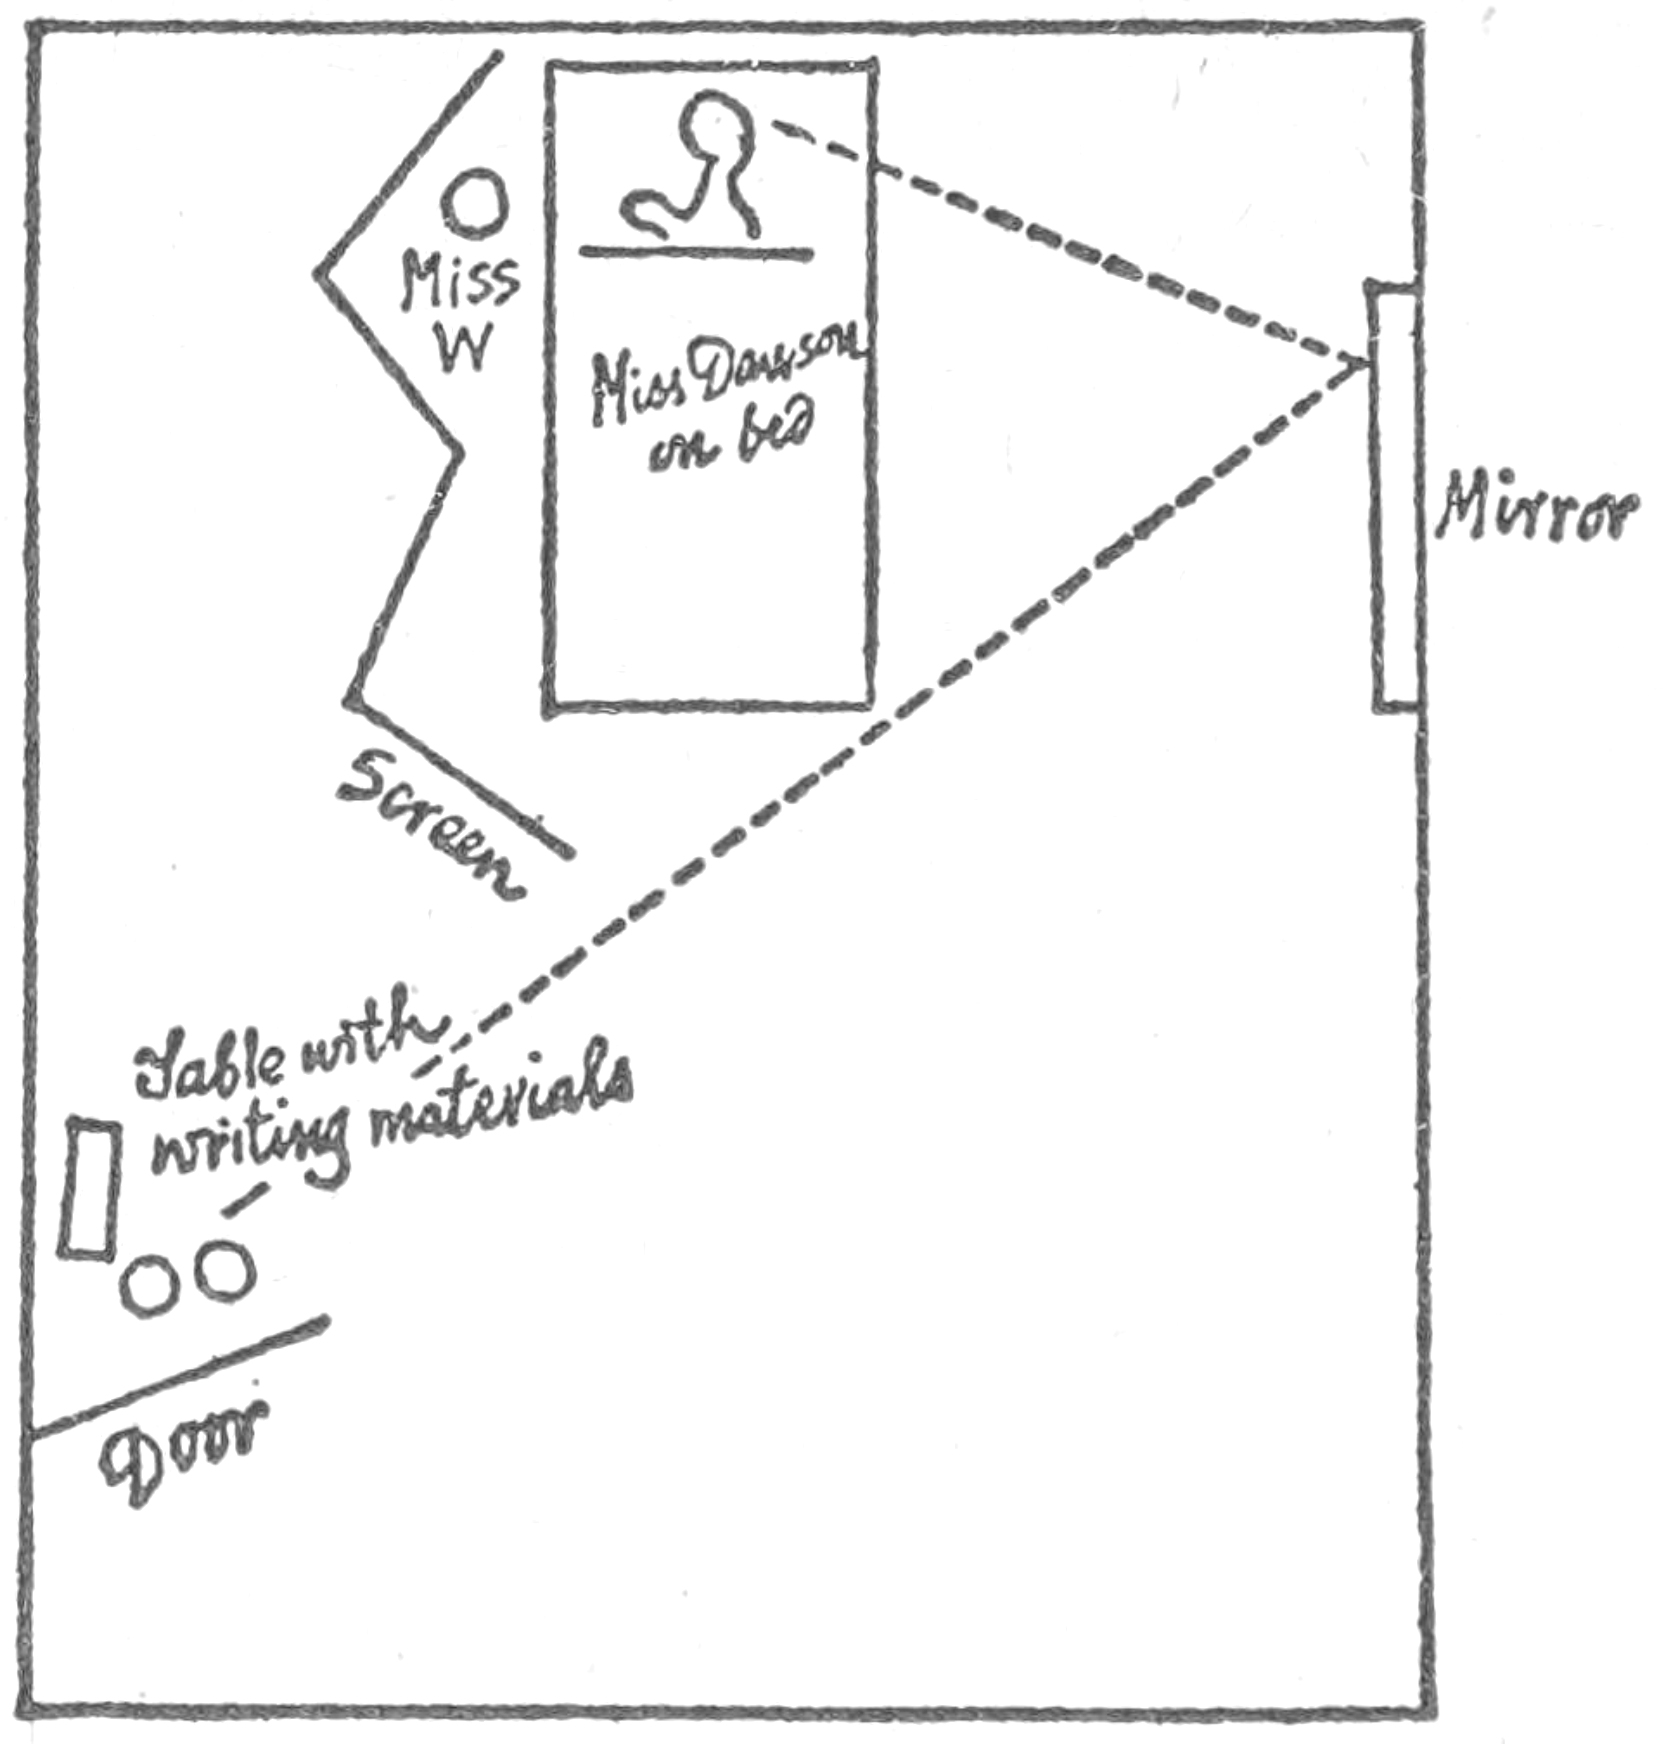 Miss
W
Miss Dawson
on bed
Mirror
Screen
Table with
writing materials
Door